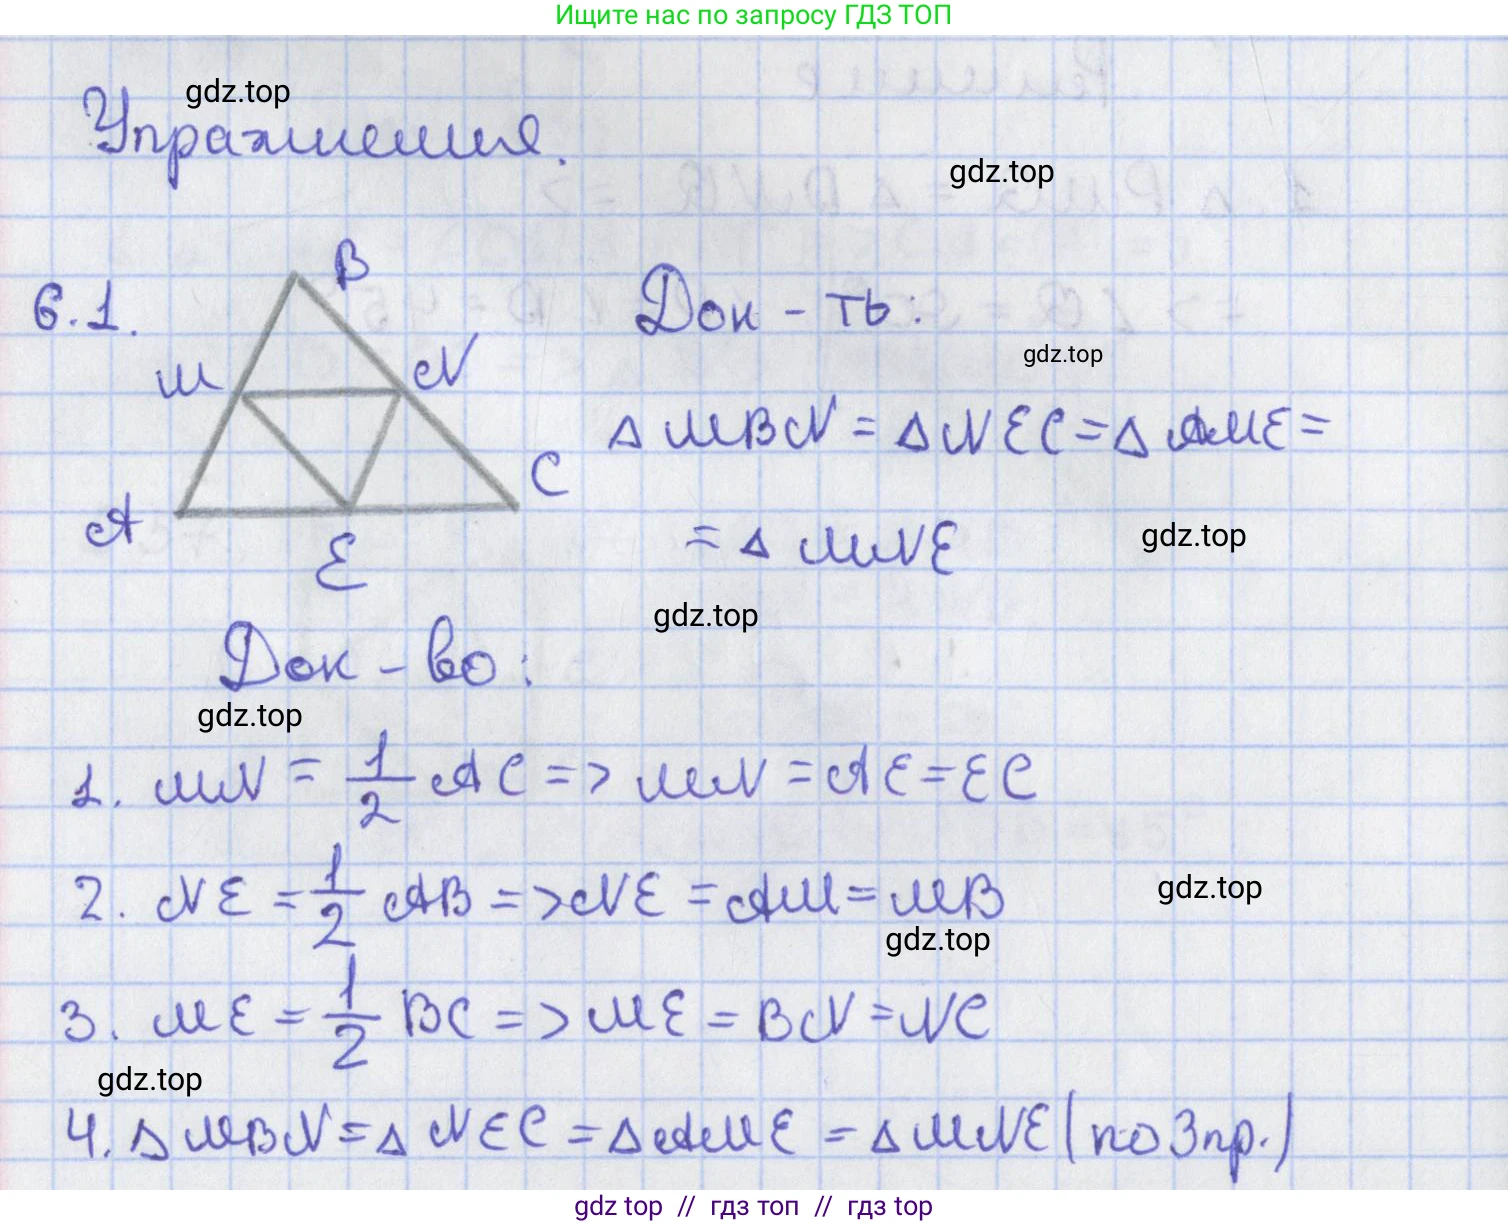 Ищите нас по запросу ГДЗ ТОП
gdz.top
Упражнения.
gdz.top
6.1.
B
M
N
A
C
E
Док-ть:
gdz.top
△ MBN = △ NEC = △ AME =
= △ MNE
gdz.top
gdz.top
Док-во:
gdz.top
1. MN = 1/2 AC => MN = AE = EC
2. NE = 1/2 AB => NE = AM = MB
gdz.top
gdz.top
3. ME = 1/2 BC => ME = BN = NC
gdz.top
4. △ MBN = △ NEC = △ AME = △ MNE (по 3 пр.)
gdz top // гдз топ // гдз top